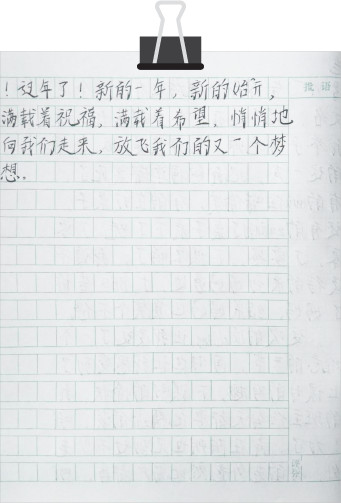 ！过年了！新的一年，新的始示，
满载着祝福，满载着希望，悄悄地
向我们走来，放飞我们的又一个梦
想。
批语